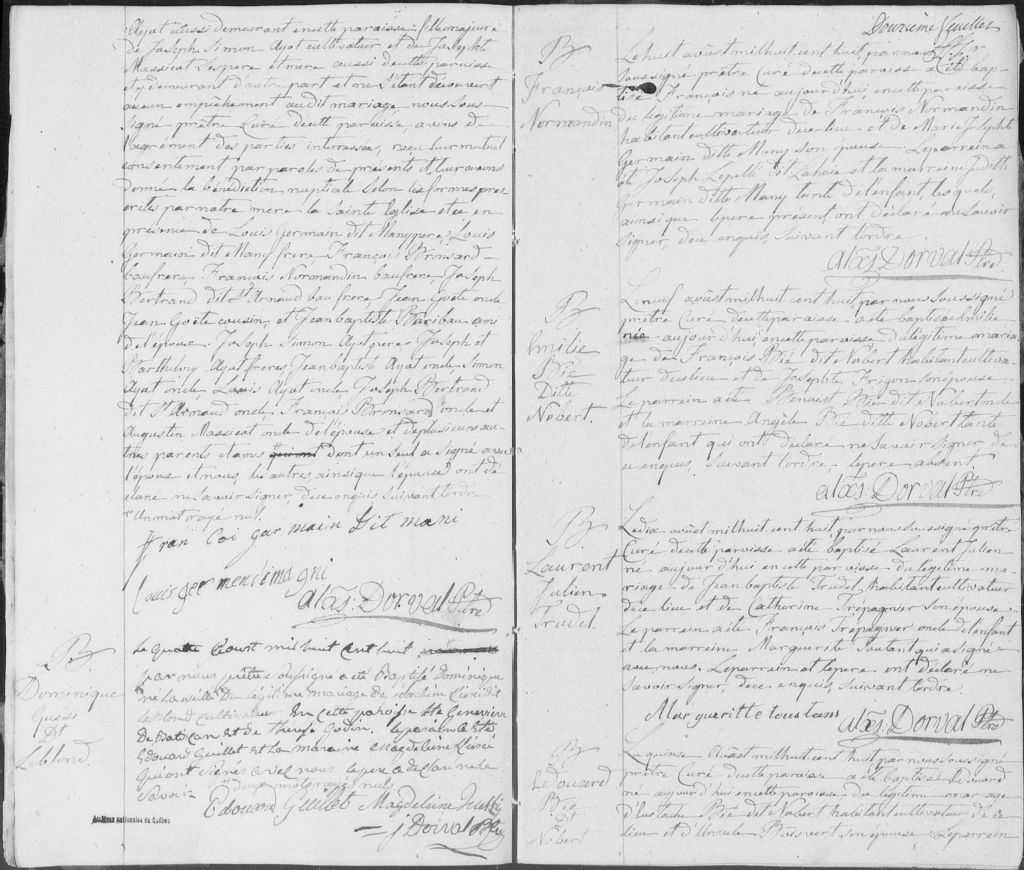 Ayot aussi demeurant en cette paroisse fille majeure
de Joseph Simon Ayot cultivateur et de Josephte
Massicot ses pere et mere aussi de cette paroisse
et y demeurant d'autre part et ne s'étant découvert
aucun empêchement au dit mariage nous sous
signé prêtre Curé de cette paroisse, avons de
l'agrément des parties interessées, reçu leur mutuel
consentement par paroles de présents et leur avons
donné la bénédiction nuptiale selon les formes pres-
crites par notre mere la Sainte Eglise et ce en
présence de Louis Germain dit Many pere Louis
Germain dit Many frere François Bronsard
beaufrere François Normandin beaufrere, Joseph
Bertrand dit St Arnaud beaufrere Jean oncle
Jean cousin, et Jean baptiste Baribau ami
de l'époux. Joseph Simon Ayot pere Joseph et
Barthelmy Ayot freres Jean baptiste Ayot oncle Simon
Ayot oncle, Louis Ayot oncle, Joseph Bertrand
dit St Arnaud oncle François Bronsard oncle et
Augustin Massicot oncle de l'épouse et de plusieurs au-
tres parents et amis dont un seul a signé avec
l'époux et nous, les autres ainsi que l'épouse ont dé
claré ne savoir signer, de ce enquis suivant l'ordre
un mot rayé nul.
fran Coi gar main dit mani
Louis germen dimagni
alexs: Dorval Ptre
B
Dominique
dit
Leblond.
Le quatre aoust mil huit cent huit
par nous prêtre soussigné a été Baptisé Dominique
né la veille du légitime mariage de dit
Leblond cultivateur en cette paroisse Ste Genevieve
de Batiscan et de Godin, le parain a été
Edouard Guillet et la maraine Magdeleine
qui ont signés avec nous le pere a déclaré ne le
savoir deux mots rayés nuls
Edouard Guillet Magdeleine
J Dorval Ptre
Archives nationales du Québec
Douzieme feuillet
B
François
Normandin
Le huit août mil huit cent huit par nous
soussigné prêtre Curé de cette paroisse a été bap-
tisé François né aujourd'hui en cette paroisse
du légitime mariage de François Normandin
habitant cultivateur de ce lieu et de Marie Josephte
Germain ditte Many son épouse. Le parrein a
été Joseph dit Lahaie et la marreine Judith
Germain ditte Many tante de l'enfant, lesquels,
ainsi que le pere présent ont déclaré ne savoir
signer, de ce enquis, suivant l'ordre
alexs: Dorval Ptre
B
Emilie
Bié
Ditte
Nobert.
Le neuf août mil huit cent huit, par nous soussigné
prêtre Curé de cette paroisse a été baptisée Emilie
née aujourd'hui en cette paroisse du légitime maria-
ge de François Bié dit Nobert habitant cultiva-
teur de ce lieu et de Josephte Frigon son épouse.
Le parrein a été Benoist Bié dit Nobert oncle
et la marreine Angéle Bié ditte Nobert tante
de l'enfant qui ont déclaré ne savoir signer de
ce enquis, suivant l'ordre. le pere absent.
alexs: Dorval Ptre
B
Laurent
Julien
Trudel.
Le dix août mil huit cent huit, par nous soussigné prêtre
Curé de cette paroisse a été baptisé Laurent Julien
né aujourd'hui en cette paroisse du légitime ma-
riage de Jean baptiste Trudel habitant cultivateur
de ce lieu et de Catherine Trépagnier son épouse.
Le parrein a été François Trépagnier oncle de l'enfant
et la marreine Marguerite Toutant qui a signé
avec nous. Le parrein et le pere ont déclaré ne
savoir signer, de ce enquis, suivant l'ordre.
Margueritte toutans alexs: Dorval Ptre
B
Edouard
Bié
Dt
Nobert
Le quinze Août mil huit cent huit par nous soussigné
prêtre Curé de cette paroisse a été baptisé Edouard
né aujourd'hui en cette paroisse du légitime mariage
d'Eustache Bié dit Nobert habitant cultivateur de ce
lieu et d'Ursule Boisvert son épouse. Le parrein